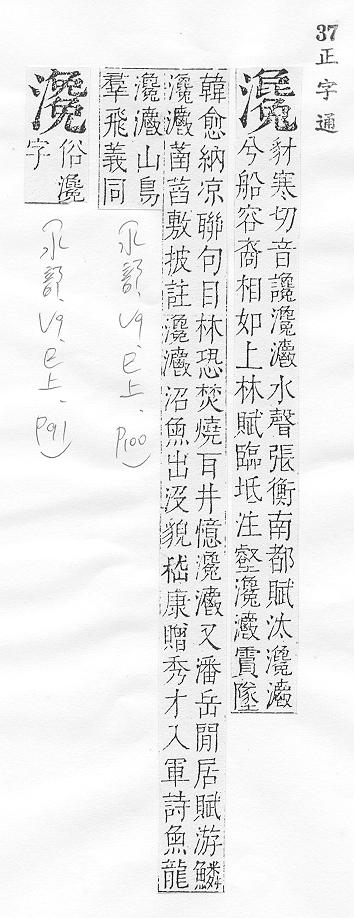 37 正字通
瀺
豺寒切音讒瀺灂水聲張衡南都賦汰瀺灂
兮船容裔相如上林賦臨坻注壑瀺灂霣墜
韓愈納凉聯句目林恐焚燒耳井憶瀺灂又潘岳閒居賦游鱗
瀺灂菡萏敷披註瀺灂沼魚出没貌嵇康贈秀才入軍詩魚龍
瀺灂山鳥
羣飛義同
(水部、V9、巳上、P100)
俗瀺
字
(水部、V9、巳上、P91)